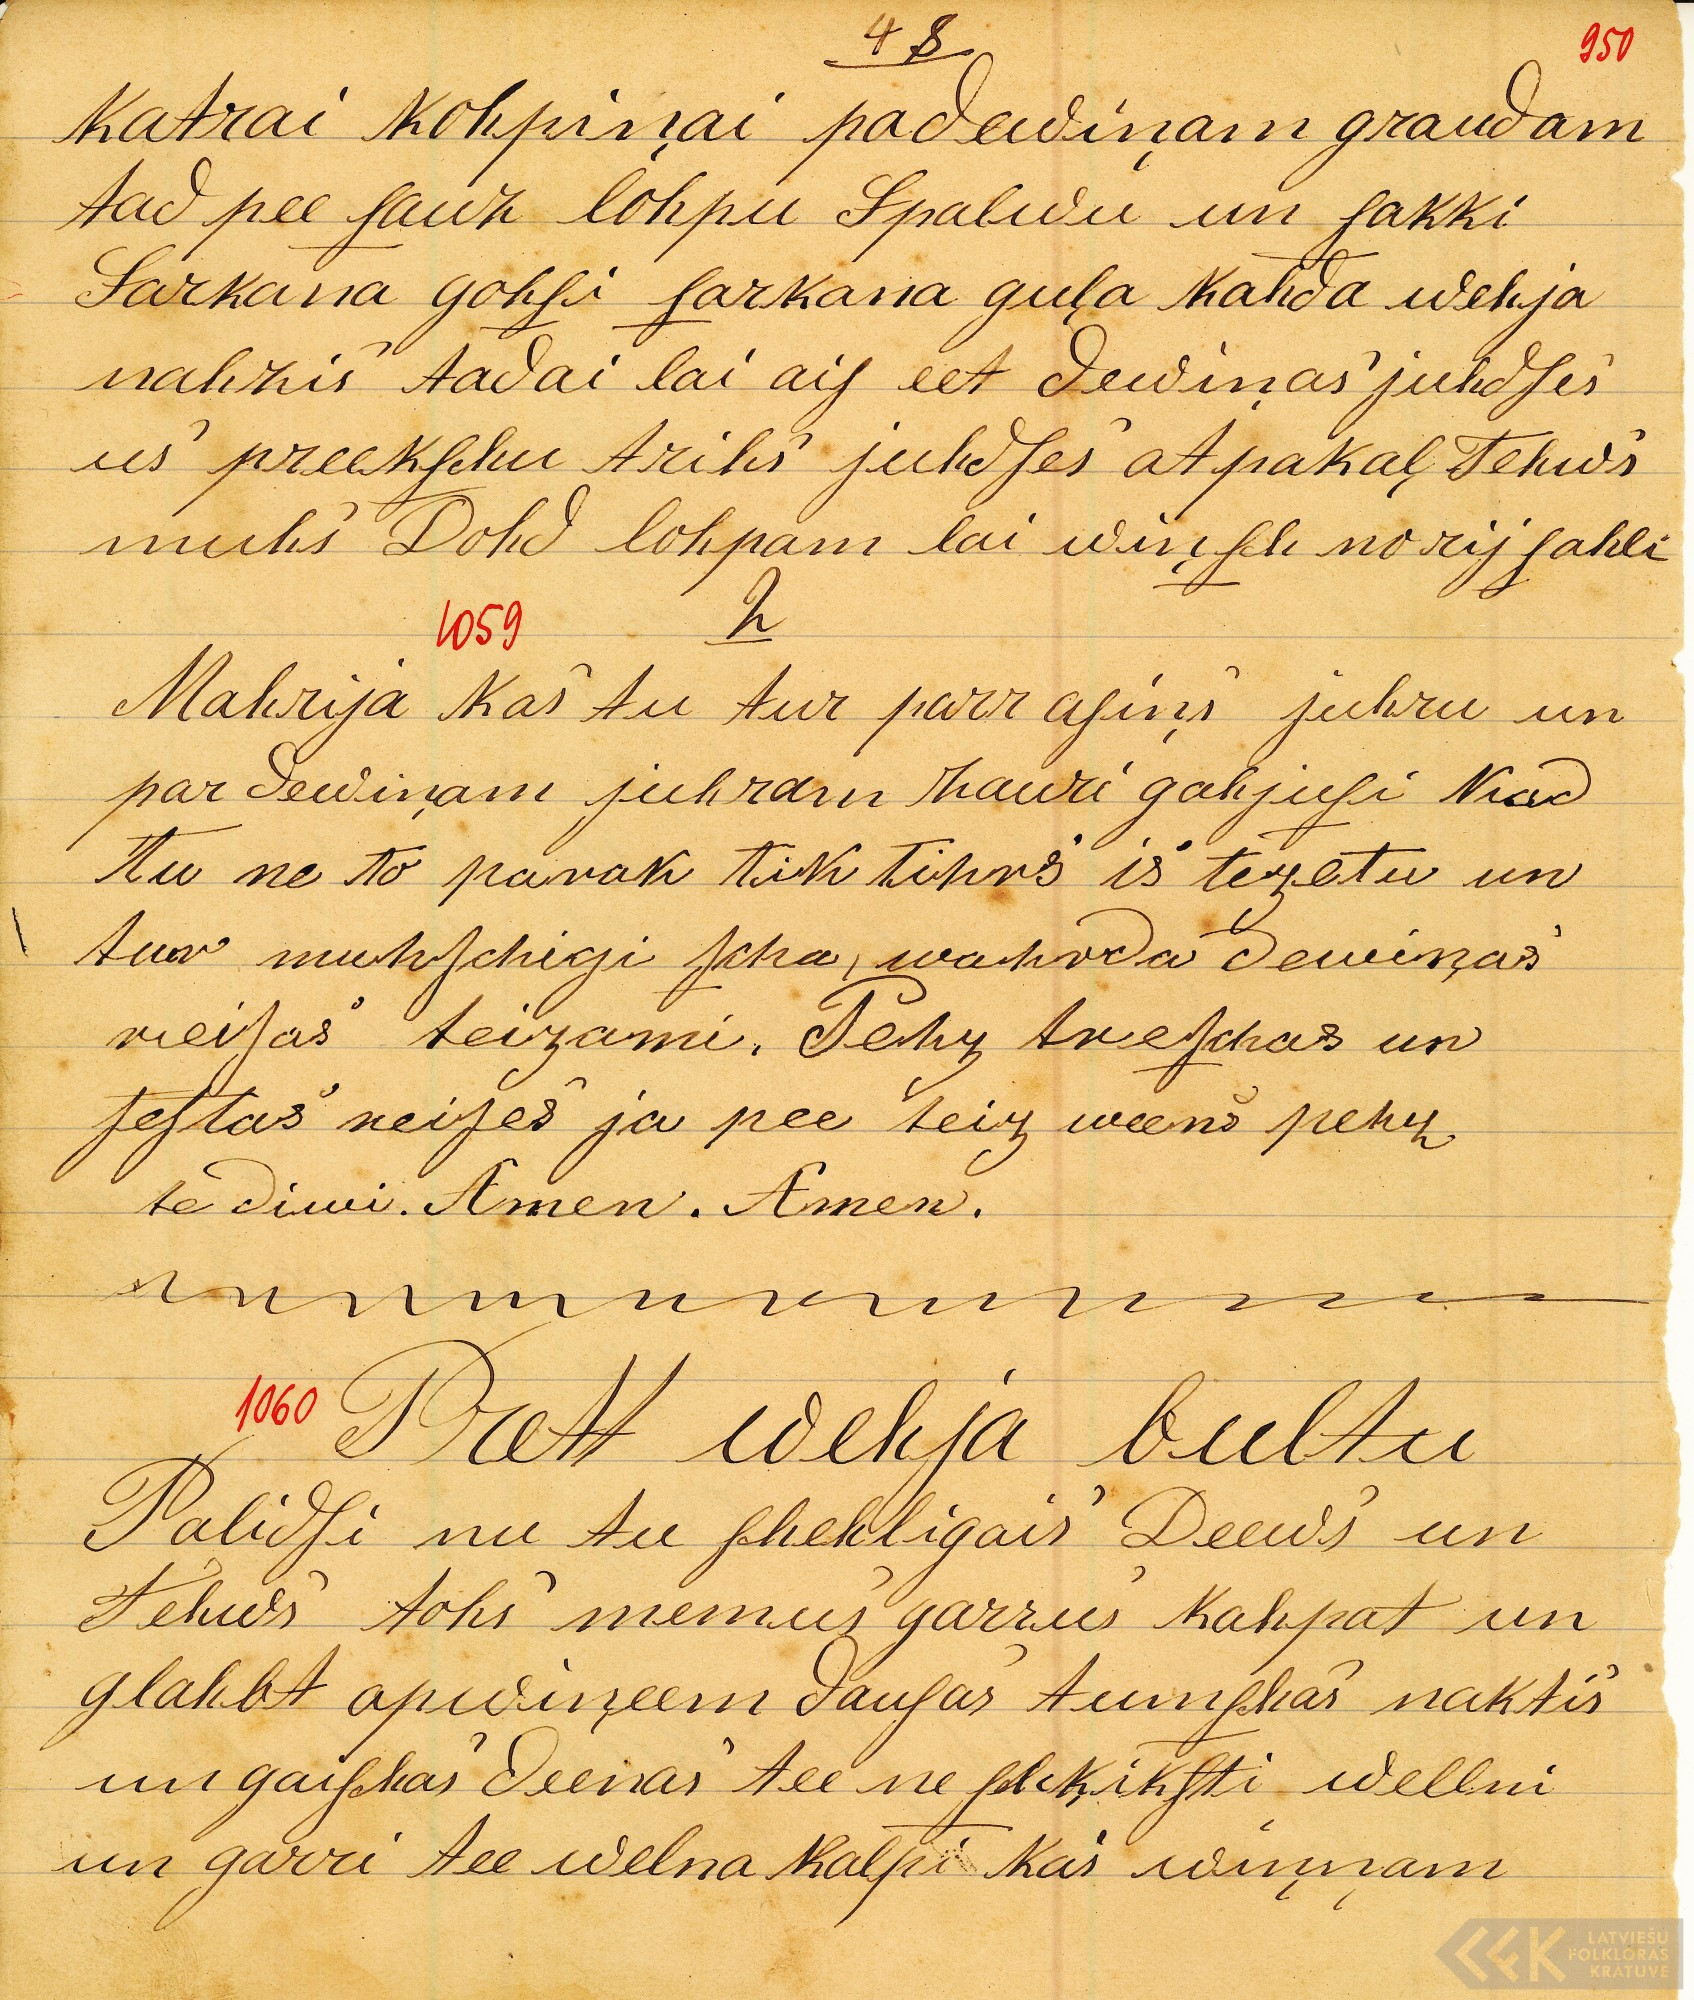 48
950
Katrai kohpiņai padewiņam graudam
tad pee ſauz lohpu Spalwu un ſakki
Sarkana gohſi ſarkana guļa kahda wehja
nahzis tadai lai aiſ eet dewiņas juhdſes
us preekſchu trihs juhdſes atpakaļ Tehws
muhs Dohd lohpam lai wiņſch no rij ſahli
1059
2
Mahrija kas tu tur parr aſiņs juhru un
par dewiņam juhram zauri gahjuſi Kad
tu ne to parak tik tihrs is tezetu un
tur muhſchigi ſcha wahrda dewiņas
reiſas teizami. Pehz treſchas un
ſeſtas reiſes ja pee teiz weens pehz
te diwi. Amen. Amen.
1060
Prett wehja bultu
Palidſi nu tu ſhehligais Deews un
Tehws tohs memus garrus kahpat un
glahbt apwiņeem dauſas tumſhas naktis
un gaiſhas deenas tee ne ſchķihſti wellni
un garri tee welna kalpi kas wiņņam
LATVIEŠU
FOLKLORAS
KRĀTUVE